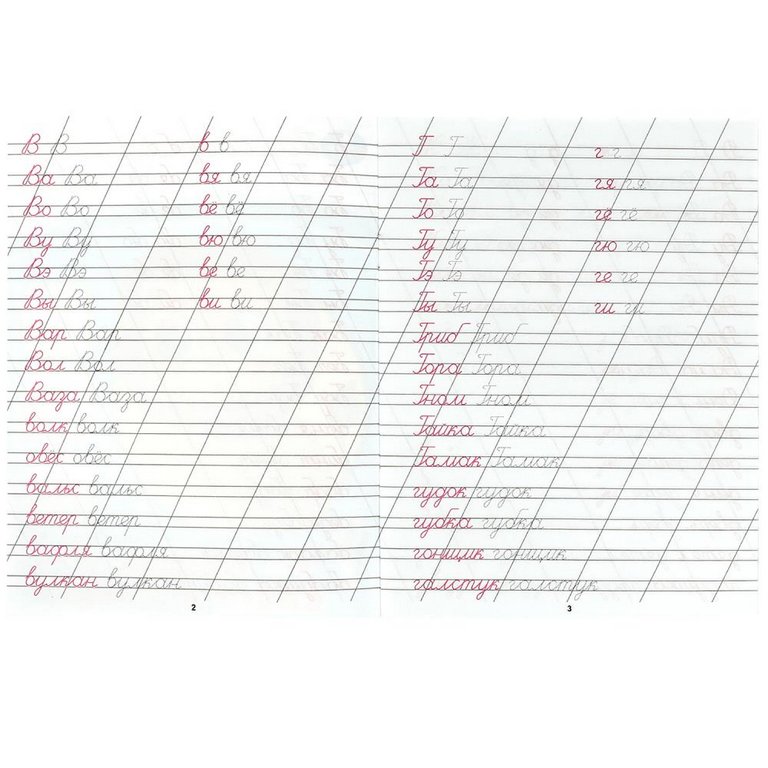 В В в в
Ва Ва вя вя
Во Во вё вё
Ву Ву вю вю
Вэ Вэ ве ве
Вы Вы ви ви
Вар Вар
Вол Вол
Ваза Ваза
волк волк
овёс овёс
вальс вальс
ветер ветер
вафля вафля
вулкан вулкан
2
Г Г г г
Га Га гя гя
Го Го гё гё
Гу Гу гю гю
Гэ Гэ ге ге
Гы Гы ги ги
Гриб Гриб
Гора Гора
Гном Гном
Гайка Гайка
Гамак Гамак
гудок гудок
губка губка
гонщик гонщик
галстук галстук
3